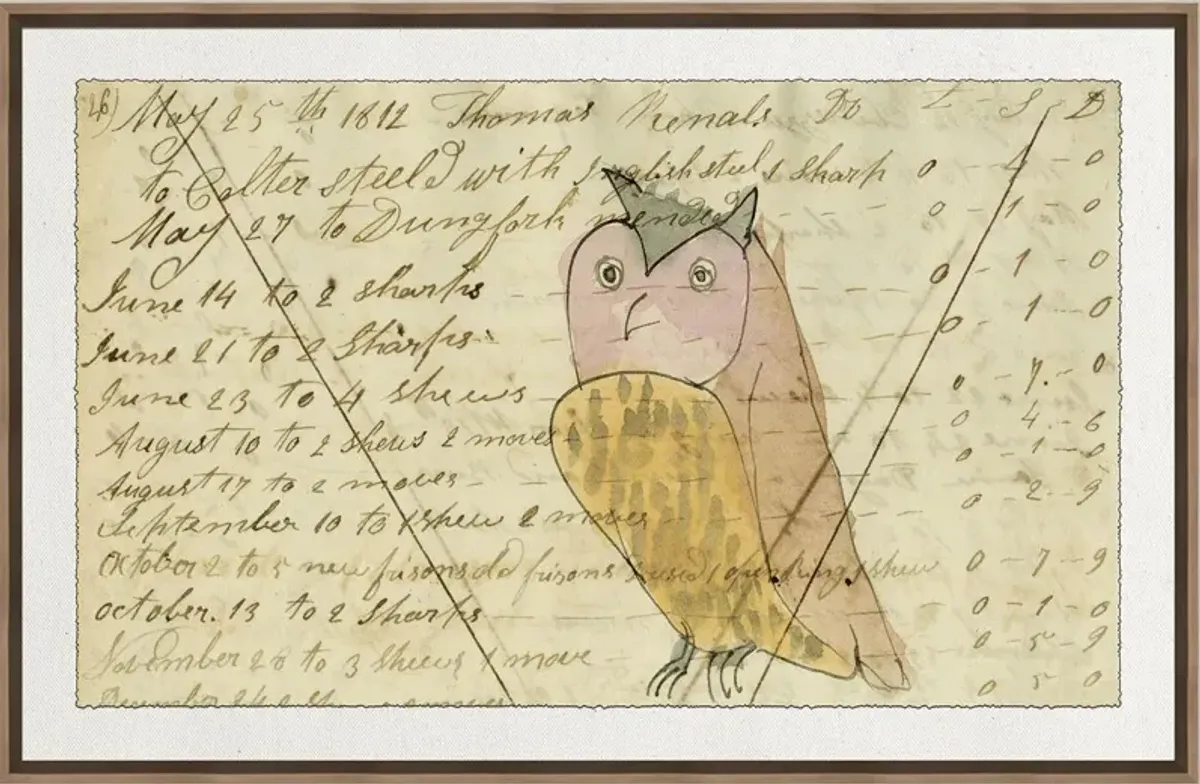 46) May 25th 1812 Thomas Renals Dr L - S D
to Colter steeld with Inglish steel 1 sharp 0 - 4 - 0
May 27 to Dungfork mended 0 - 1 - 0
June 14 to 2 sharps 0 - 1 - 0
June 21 to 2 Sharps 0 - 1 0
June 23 to 4 shews 0 - 7 - 0
August 10 to 2 shews 2 moves 0 4 - 6
August 17 to 2 moves 0 - 1 - 0
September 10 to 1 shew 2 moves 0 - 2 - 9
October 2 to 5 new frisons old frisons 1 shew 0 - 7 - 9
october. 13 to 2 Sharps 0 - 1 - 0
November 28 to 3 Shews 1 move 0 - 5 - 9
December 24 2 0 5 0